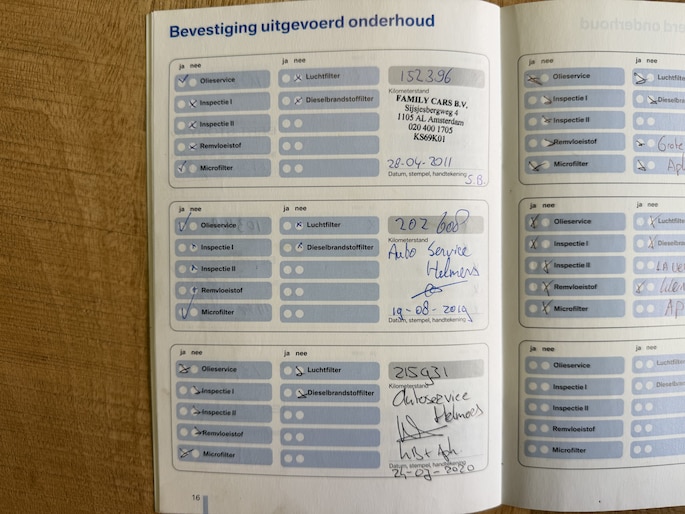 Bevestiging uitgevoerd onderhoud
ja nee
ja nee
Olieservice
Luchtfilter
Inspectie I
Dieselbrandstoffilter
Inspectie II
Remvloeistof
Microfilter
152396
Kilometerstand
FAMILY CARS B.V.
Sijsjesbergweg 4
1105 AL Amsterdam
020 400 1705
KS69K01
28-04-2011
Datum, stempel, handtekening
S.B.
ja nee
ja nee
Olieservice
Luchtfilter
Inspectie I
Dieselbrandstoffilter
Inspectie II
Remvloeistof
Microfilter
202608
Kilometerstand
Auto Service
Helmers
19-08-2019
Datum, stempel, handtekening
ja nee
ja nee
Olieservice
Luchtfilter
Inspectie I
Dieselbrandstoffilter
Inspectie II
Remvloeistof
Microfilter
215931
Kilometerstand
Autoservice
Helmers
Datum, stempel, handtekening
24-07-2020
16
ja nee
Olieservice
Luchtfilte
Inspectie I
Dieselbra
Inspectie II
Remvloeistof
Grote
Microfilter
ja nee
Olieservice
Luchtfilte
Inspectie I
Dieselbra
Inspectie II
Remvloeistof
Microfilter
ja nee
Olieservice
Luchtfilte
Inspectie I
Dieselbra
Inspectie II
Remvloeistof
Microfilter